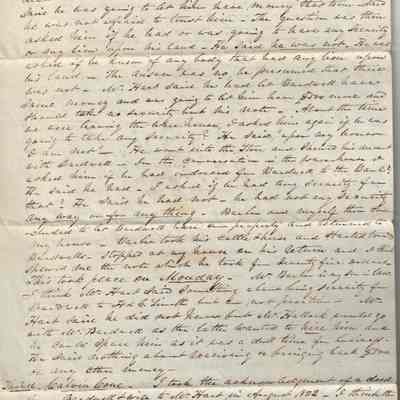 Said he was going to let him have money that time - Said
he was not afraid to trust him - The question was then
asked him if he had or was going to have any security
or any lien upon his land - He said he was not. He was
asked if he knew of any body that had any lien upon
his land - The answer was no, he presumed that there
was not - Mr Hart said he had let Burdwell have
some money and was going to let him have more and
should take no security but his note - About the time
we were leaving the I asked him again if he was
going to take any Security? He said, upon my honor
I am not - He went into the Store and
with Burdwell - In the conversation in the I
asked him if he had endorsed for Burdwell to the Bank?
He said he had - I asked if he had any Security for
that? He said he had not - he had not any Security
any way or for any thing - and myself then
to let Burdwell have our property and returned to
my house - took his cattle and to
Burdwells - Stopped at my house on his return and
showed me the note which he took for
This took place on Monday - Mr is my
I think Mr Hart said Something about being Security for
Burdwell to Smith but am not positive - Mr
Hart said he did not know but Mr Hallock would go
with Mr. Burdwell as the latter wanted to hire him and
he could spare him as it was a dull time for business.
He said nothing about or bringing back
or any other money -
Calvin Cone - I took the acknowledgment of a deed
Burdwell & wife to Mr Hart in August 1842 - I think the